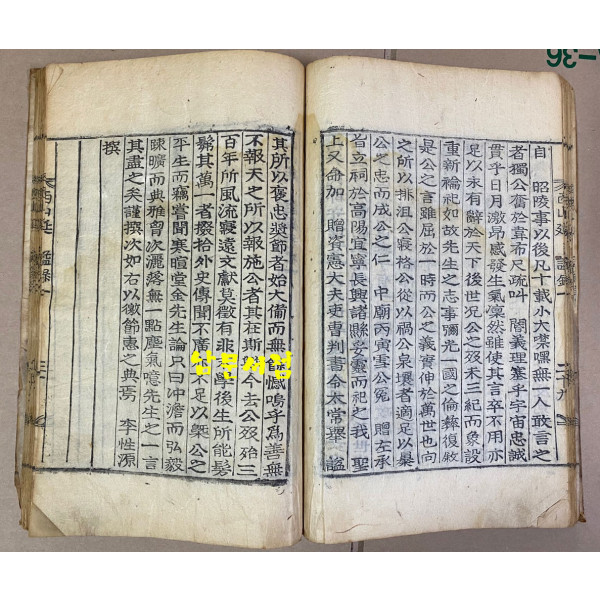 自 昭陵事以後凡十載小大噤嘿無一人敢言之
者獨公奮於韋布尺疏叫 閤義理塞乎宇宙忠誠
貫乎日月激昂感發生氣凜然雖使其言卒不用亦
足以永有辭於天下後世況公之歿未三紀而象設
重新綸祀如故先生之志事彌光一國之倫彝復敘
是公之言雖屈於一時而公之義實伸於萬世也向
之所以排沮公寢格公從以禍公泉壤者適足以㬥
公之忠而成公之仁 中廟丙寅雪公冤 贈左承
旨立祠於高陽宜寧長興諸縣妥靈而祀之我 聖
上又命加 贈資憲大夫吏曹判書令太常舉 謚
其所以褒忠奬節者始大備而無餘憾嗚乎爲善無
不報天之所以報施公者其在斯乎今去公歿殆三
百年所風流寢遠文獻莫徵有非後學後生所能髣
髴其萬一者掇拾外史傳聞不廣不足以槩公之
平生而竊嘗聞寒暄堂金先生論只曰冲澹而弘毅
踈曠而典雅胷次灑落無一點塵氣噫先生之一言
其盡之矣謹撰次如右以徵節惠之典焉 李性源
撰
삼문서점